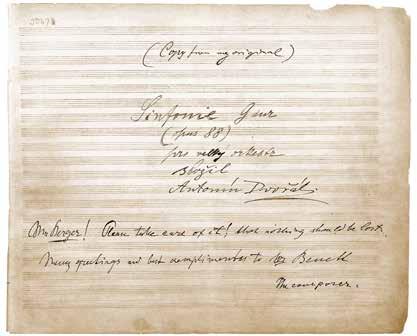 (Copy from my original)
Sinfonie G dur
(opus 88)
pro velký orkestr
složil
Antonín Dvořák.
Mr Berger! Please take care of it! that nothing should be lost.
Many greetings and best complimentes to Mr Benett
The composer.